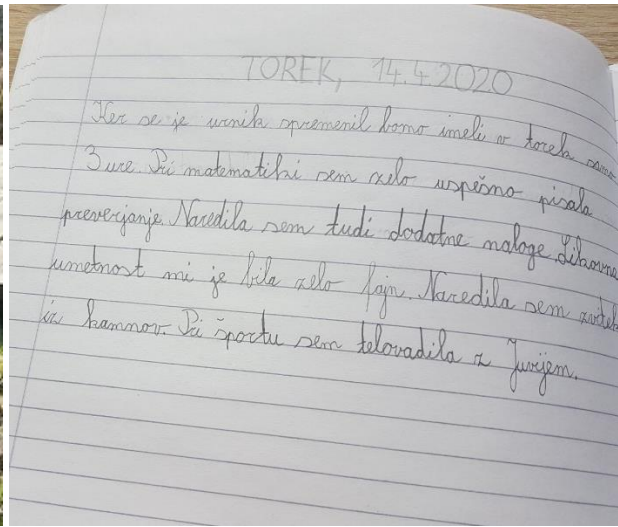 TOREK, 14.4.2020
Ker se je urnik spremenil bomo imeli v torek samo
3 ure. Pri matematiki sem zelo uspešno pisala
preverjanje. Naredila sem tudi dodatne naloge. Likovna
umetnost mi je bila zelo fajn. Naredila sem
iz kamnov. Pri športu sem telovadila z Jurijem.